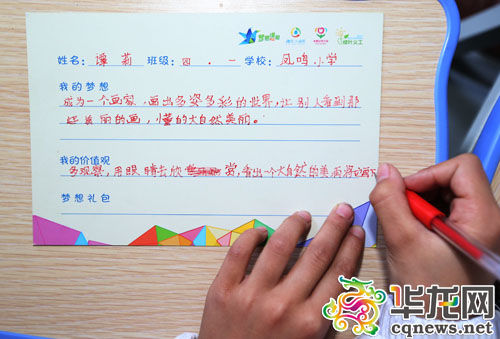 姓名：谭莉 班级：四．一 学校：凤鸣小学
我的梦想
成为一个画家，画出多姿多彩的世界，让别人看到那
美丽的画，懂的大自然美丽。
我的价值观
多观察，用眼睛去欣赏，看出一个大自然的美丽
梦想礼包
华龙网
cqnews.net